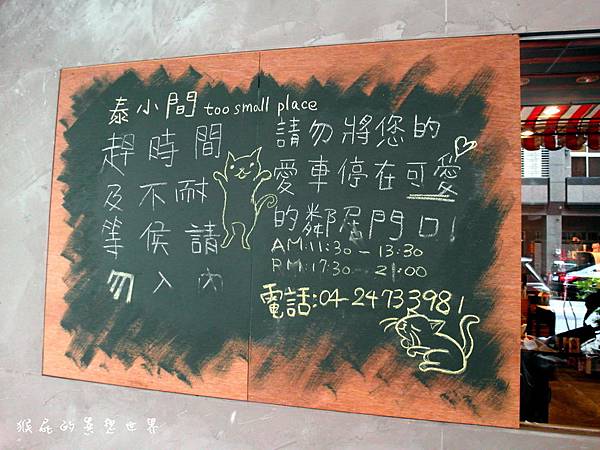 泰小間 too small place
趕時間
及不耐
等候請
勿入內
請勿將您的
愛車停在可愛
的鄰居門口!
AM:11:30 - 13:30
PM:17:30 - 21:00
電話:04-24733981
猴屁的異想世界